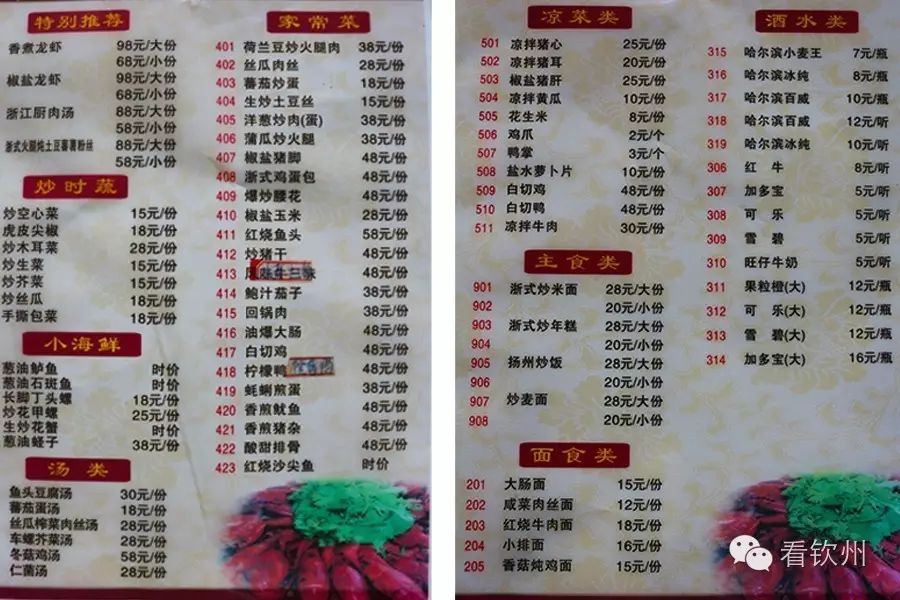 特别推荐
香煮龙虾 98元/大份
68元/小份
椒盐龙虾 98元/大份
68元/小份
浙江厨肉汤 88元/大份
58元/小份
浙式火腿炖土豆蕃薯粉丝 88元/大份
58元/小份
炒时蔬
炒空心菜 15元/份
虎皮尖椒 18元/份
炒木耳菜 28元/份
炒生菜 15元/份
炒芥菜 15元/份
炒丝瓜 18元/份
手撕包菜 18元/份
小海鲜
葱油鲈鱼 时价
葱油石斑鱼 时价
长脚丁头螺 18元/份
炒花甲螺 25元/份
生炒花蟹 时价
葱油蛏子 38元/份
汤类
鱼头豆腐汤 30元/份
蕃茄蛋汤 18元/份
丝瓜榨菜肉丝汤 28元/份
车螺芥菜汤 28元/份
冬菇鸡汤 58元/份
仁菌汤 28元/份
家常菜
401 荷兰豆炒火腿肉 38元/份
402 丝瓜肉丝 28元/份
403 蕃茄炒蛋 18元/份
404 生炒土豆丝 15元/份
405 洋葱炒肉(蛋) 38元/份
406 蒲瓜炒火腿 38元/份
407 椒盐猪脚 48元/份
408 浙式鸡蛋包 48元/份
409 爆炒腰花 48元/份
410 椒盐玉米 28元/份
411 红烧鱼头 58元/份
412 炒猪干 48元/份
413 48元/份
414 鲍汁茄子 38元/份
415 回锅肉 38元/份
416 油爆大肠 48元/份
417 白切鸡 48元/份
418 柠檬鸭 48元/份
419 蚝蜊煎蛋 38元/份
420 香煎鱿鱼 48元/份
421 香煎猪杂 48元/份
422 酸甜排骨 48元/份
423 红烧沙尖鱼 时价
凉菜类
501 凉拌猪心 25元/份
502 凉拌猪耳 20元/份
503 椒盐猪肝 25元/份
504 凉拌黄瓜 10元/份
505 花生米 8元/份
506 鸡爪 2元/个
507 鸭掌 3元/个
508 盐水萝卜片 10元/份
509 白切鸡 48元/份
510 白切鸭 48元/份
511 凉拌牛肉 30元/份
主食类
901 浙式炒米面 28元/大份
902 20元/小份
903 浙式炒年糕 28元/大份
904 20元/小份
905 扬州炒饭 28元/大份
906 20元/小份
907 炒麦面 28元/大份
908 20元/小份
面食类
201 大肠面 15元/份
202 咸菜肉丝面 12元/份
203 红烧牛肉面 18元/份
204 小排面 16元/份
205 香菇炖鸡面 15元/份
酒水类
315 哈尔滨小麦王 7元/瓶
316 哈尔滨冰纯 8元/瓶
317 哈尔滨百威 10元/瓶
318 哈尔滨百威 12元/听
319 哈尔滨冰纯 10元/听
306 红牛 8元/听
307 加多宝 5元/听
308 可乐 5元/听
309 雪碧 5元/听
310 旺仔牛奶 5元/听
311 果粒橙(大) 12元/瓶
312 可乐(大) 12元/瓶
313 雪碧(大) 12元/瓶
314 加多宝(大) 16元/瓶
看钦州